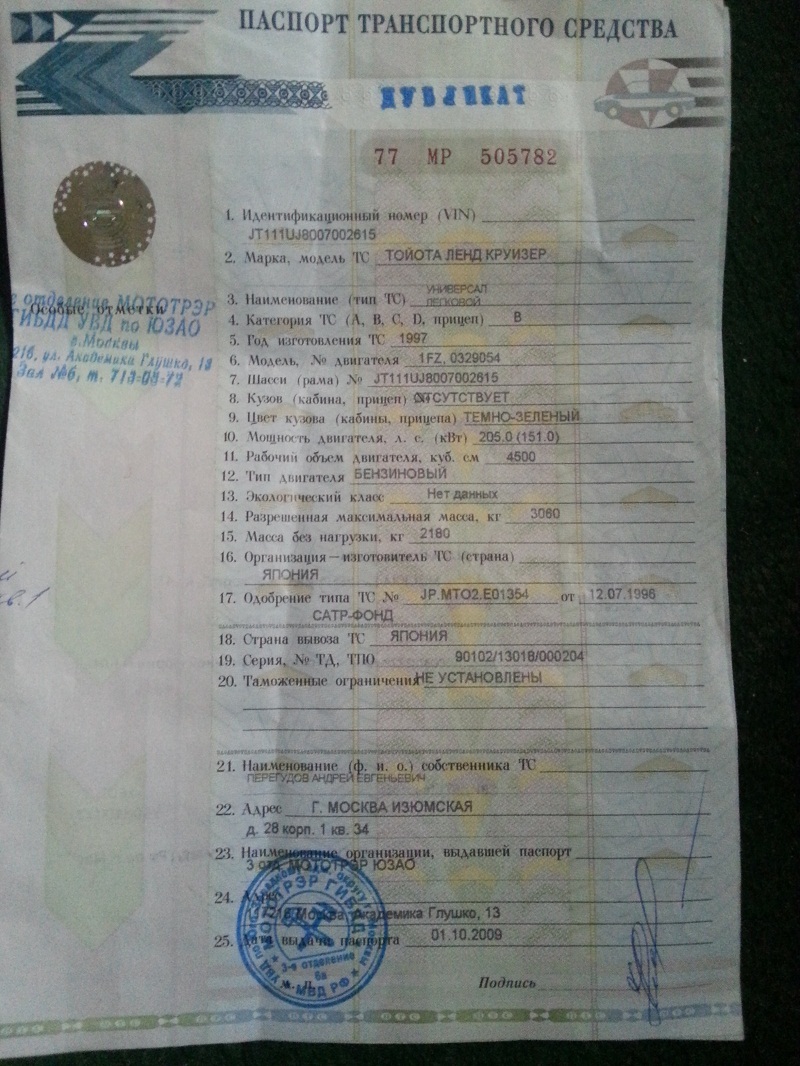 ПАСПОРТ ТРАНСПОРТНОГО СРЕДСТВА
ДУБЛИКАТ
77 МР 505782
1. Идентификационный номер (VIN)
JT111UJ8007002615
2. Марка, модель ТС ТОЙОТА ЛЕНД КРУИЗЕР
3. Наименование (тип ТС) УНИВЕРСАЛ
ЛЕГКОВОЙ
4. Категория ТС (А, В, С, D, прицеп) В
5. Год изготовления ТС 1997
6. Модель, № двигателя 1FZ, 0329054
7. Шасси (рама) № JT111UJ8007002615
8. Кузов (кабина, прицеп) № ОТСУТСТВУЕТ
9. Цвет кузова (кабины, прицепа) ТЕМНО-ЗЕЛЕНЫЙ
10. Мощность двигателя, л. с. (кВт) 205.0 (151.0)
11. Рабочий объем двигателя, куб. см 4500
12. Тип двигателя БЕНЗИНОВЫЙ
13. Экологический класс Нет данных
14. Разрешенная максимальная масса, кг 3060
15. Масса без нагрузки, кг 2180
16. Организация – изготовитель ТС (страна)
ЯПОНИЯ
17. Одобрение типа ТС № JP.MT02.E01354 от 12.07.1996
САТР-ФОНД
18. Страна вывоза ТС ЯПОНИЯ
19. Серия, № ТД, ТПО 90102/13018/000204
20. Таможенные ограничения НЕ УСТАНОВЛЕНЫ
21. Наименование (ф. и. о.) собственника ТС
ПЕРЕГУДОВ АНДРЕЙ ЕВГЕНЬЕВИЧ
22. Адрес Г. МОСКВА ИЗЮМСКАЯ
д. 28 корп. 1 кв. 34
23. Наименование организации, выдавшей паспорт
3 отд. МОТОТРЭР ЮЗАО
24. Адрес
117216 Москва, Академика Глушко, 13
25. Дата выдачи паспорта 01.10.2009
М. П.
Подпись
Особые отметки
отделение МОТОТРЭР
ГИБДД УВД по ЮЗАО
г.Москвы
216, ул. Академика Глушко, 13
Зал №6, т. 713-08-72
МОТОТРЭР ГИБДД
3-е отделение
МВД РФ